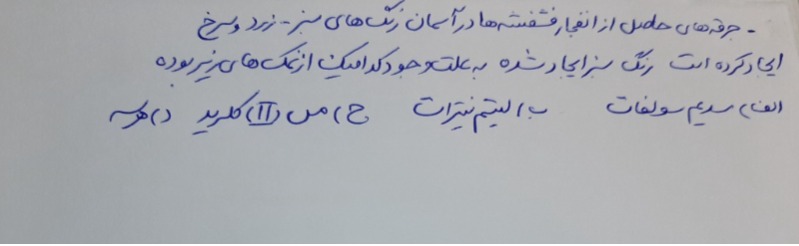 - جرقه‌های حاصل از انفجار فشفشه‌ها در آسمان رنگ‌های سبز - زرد و سرخ
ایجاد کرده است رنگ سبز ایجاد شده به علت وجود کدامیک از نمک‌های زیر بوده
الف) سدیم سولفات ب) لیتیم نیترات ج) مس (II) کلرید د) هرسه